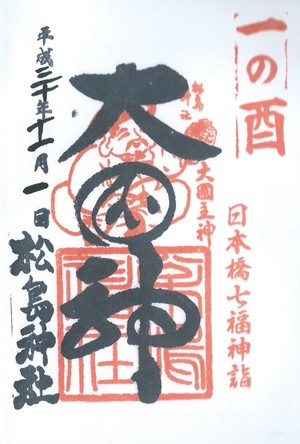 一の酉
日本橋七福神詣
松島神社
大國主神
大国神
平成三十年十一月一日
松島神社
松島神社